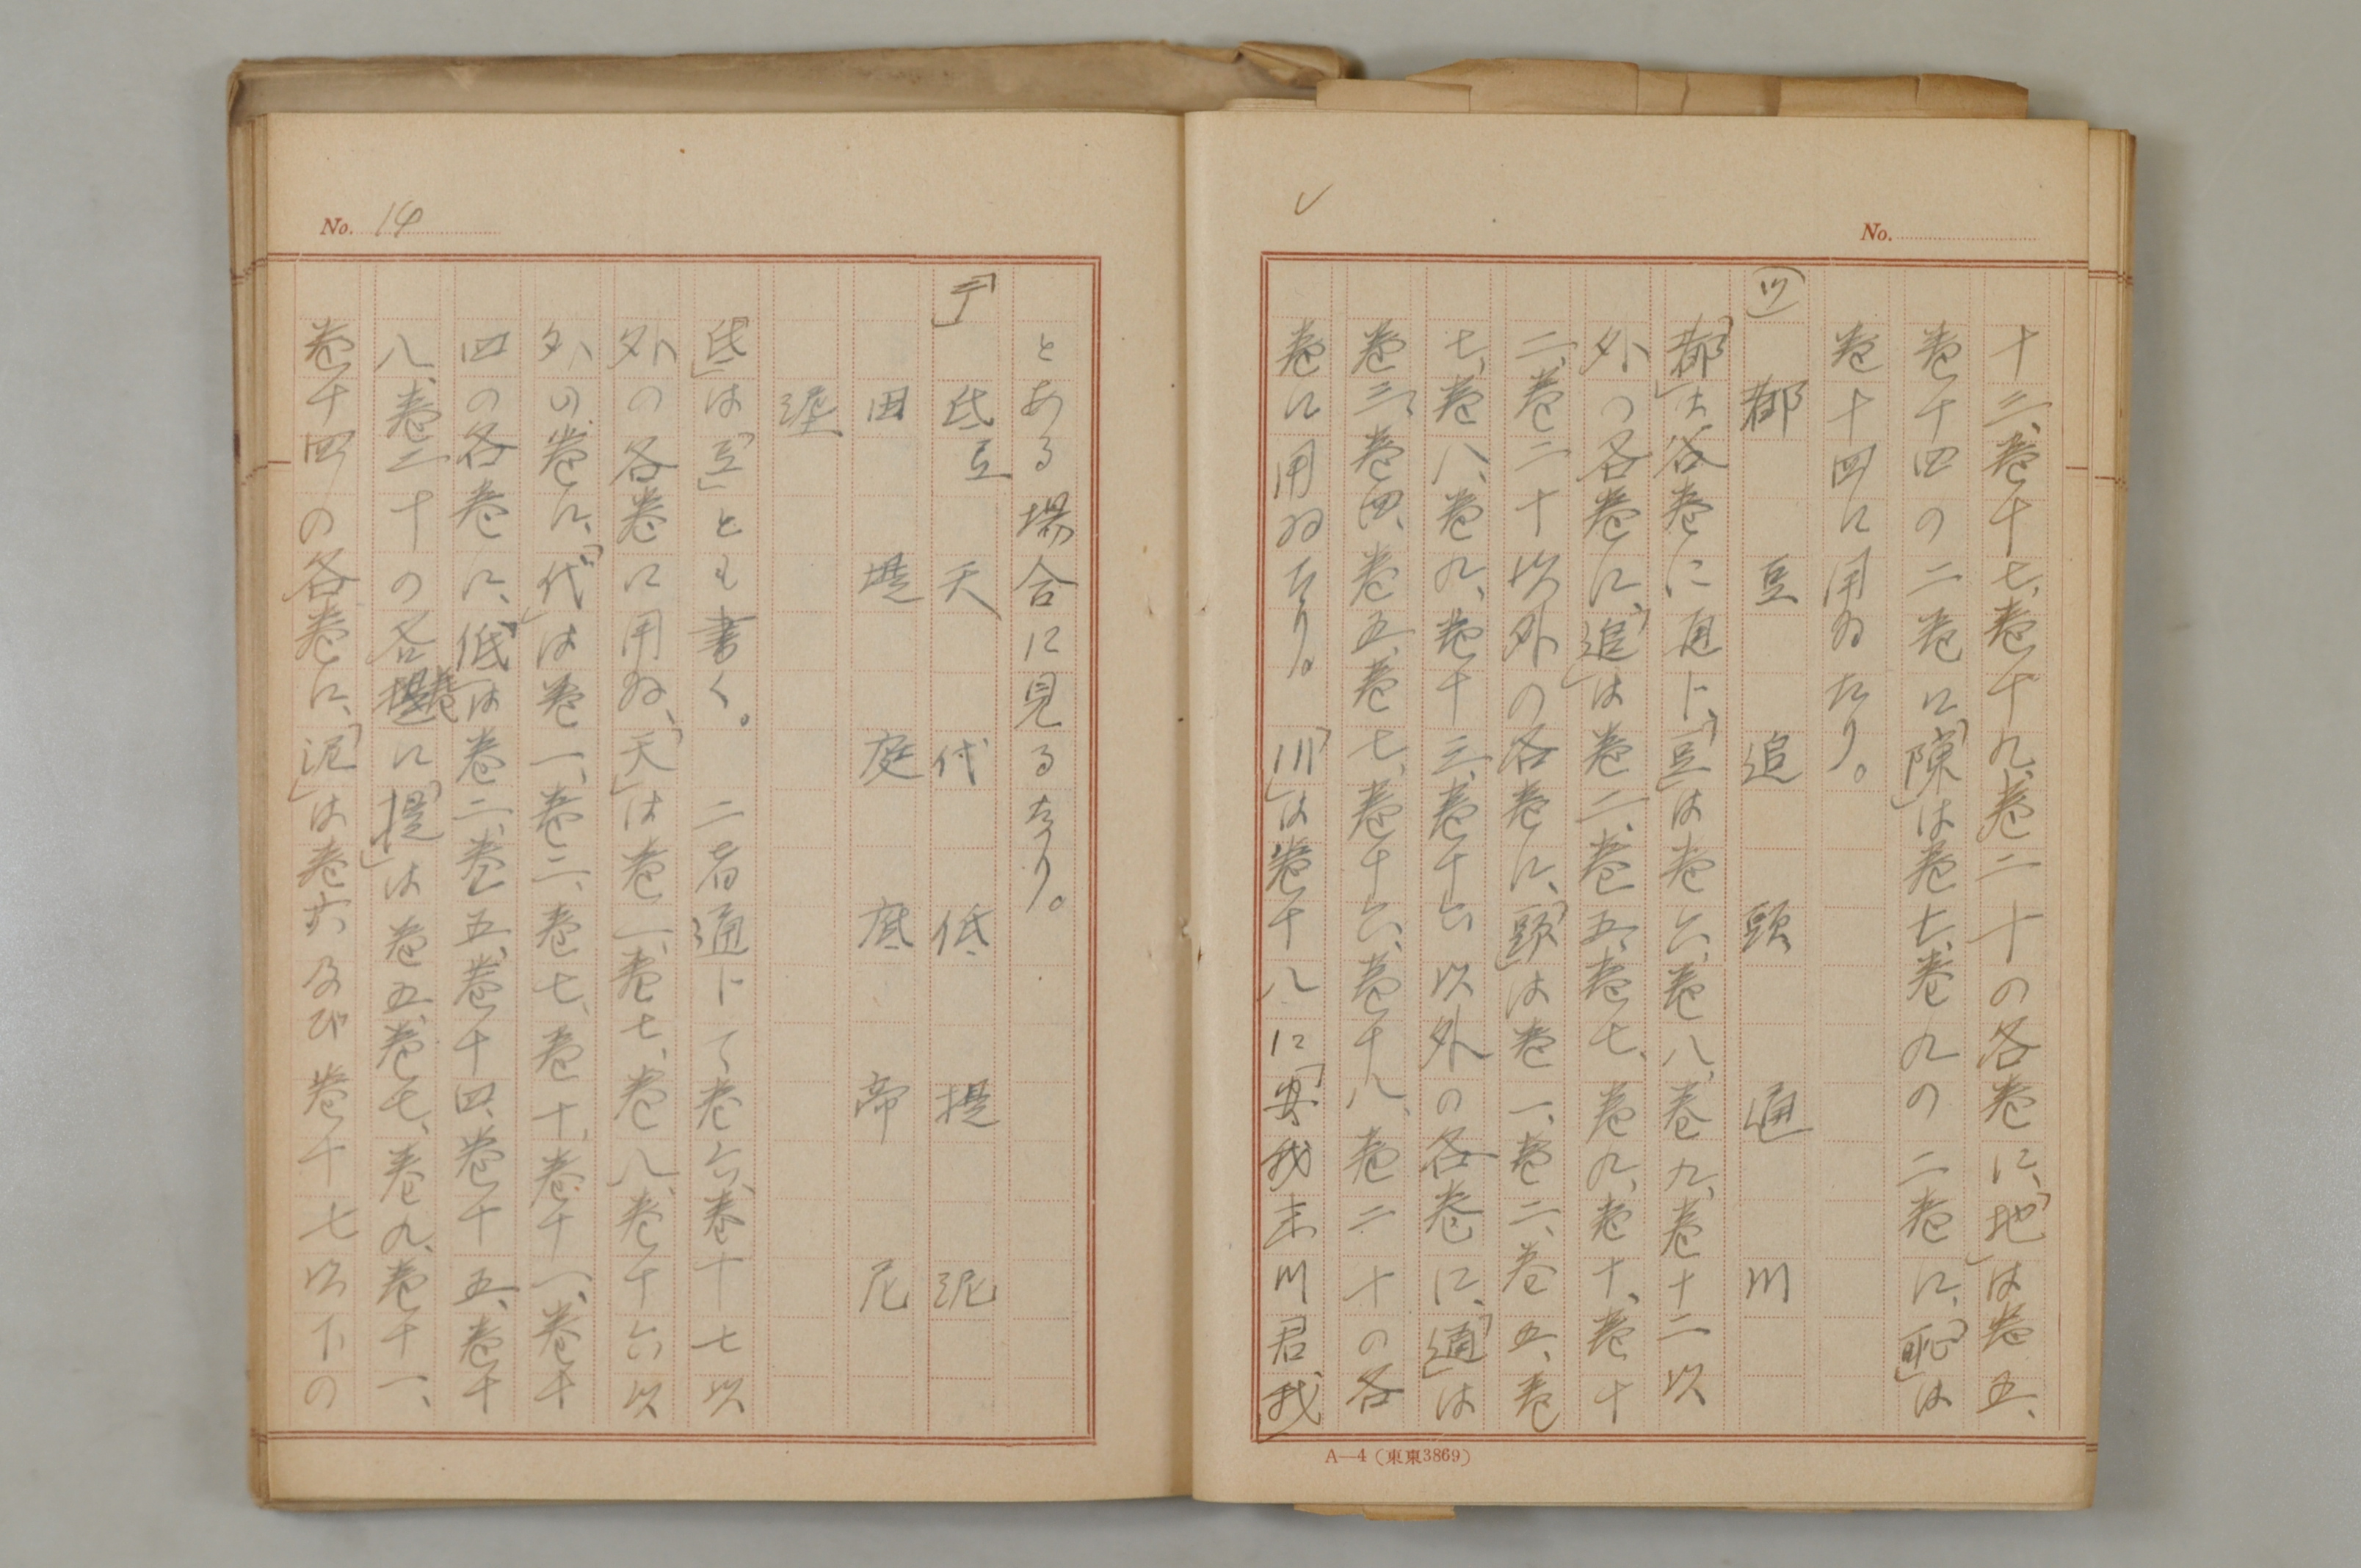 No.
十二、巻十七、巻十九、巻二十の各巻に、「地」は巻五、
巻十四の二巻に「陳」は巻七、巻九の二巻に、「恥」は
巻十四に用ゐたり。
(ツ) 都 豆 追 頭 通 川
「都」は各巻に通ト、「豆」は巻六、巻八、巻九、巻十二以
外の各巻に、「追」は巻二、巻五、巻七、巻九、巻十、巻十
二、巻二十以外の各巻に、「頭」は巻一、巻二、巻五、巻
七、巻八、巻九、巻十三、巻十六以外の各巻に、「通」は
巻三、巻四、巻五、巻七、巻十六、巻十八、巻二十の各
巻に用ゐたり。「川」は巻十八に「安我末川君我
A—4(東東3869)
No. 14
とある場合に見るなり。
「テ」 氐 互 天 代 低 提 泥
田 堤 庭 底 帝 尼
埿
「氐」は「互」とも書く。二者通トて巻六、巻十七以
外の各巻に用ゐ、「天」は巻一、巻七、巻八、巻十六以
外の巻に、「代」は巻一、巻二、巻七、巻十、巻十一、巻十
四の各巻に、「低」は巻二、巻五、巻十四、巻十五、巻十
八、巻二十の各巻に「提」は巻五、巻七、巻九、巻十一、
巻十四の各巻に、「泥」は巻六及び巻十七以下の